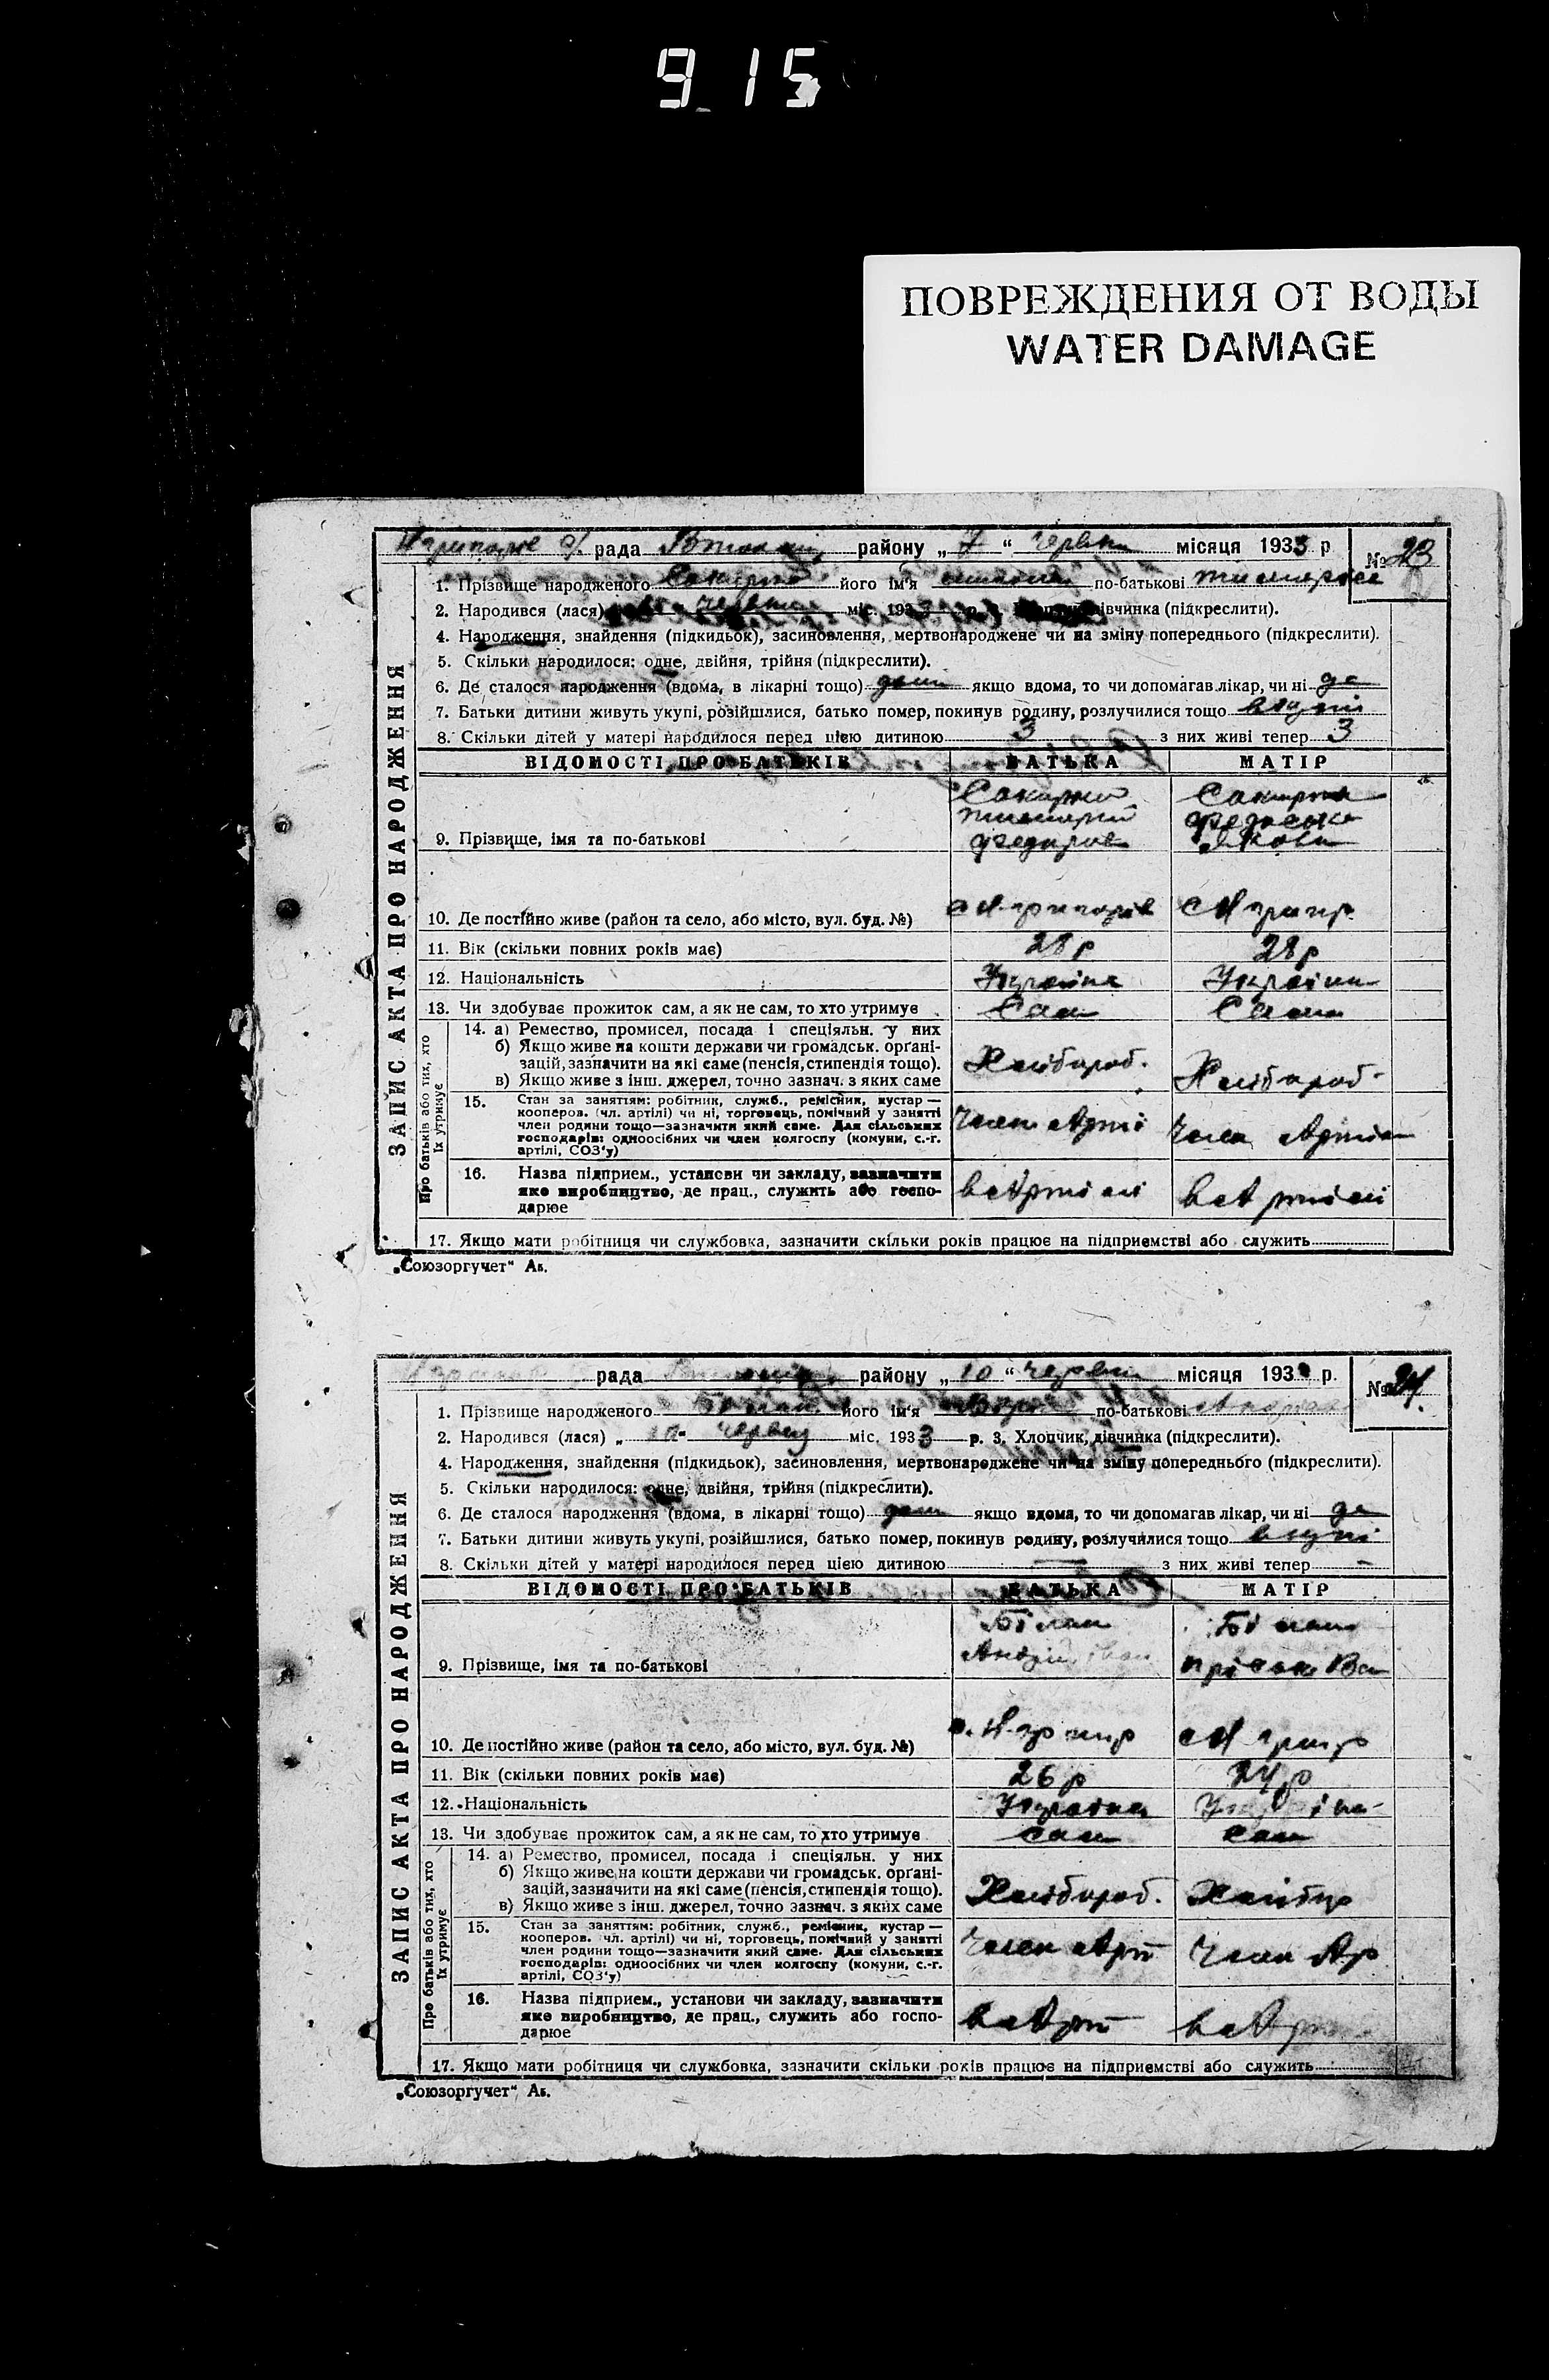 915
ПОВРЕЖДЕНИЯ ОТ ВОДЫ
WATER DAMAGE
рада району „ 7 “ червня місяця 1933 р
№ 23
1. Прізвище народженого його ім'я по-батькові
2. Народився (лася) червня міс. 193 р. дівчинка (підкреслити).
4. Народження, знайдення (підкидьок), засиновлення, мертвонароджене чи на зміну попереднього (підкреслити).
5. Скільки народилося: одне, двійня, трійня (підкреслити).
6. Де сталося народження (вдома, в лікарні тощо) дома якщо вдома, то чи допомагав лікар, чи ні
7. Батьки дитини живуть укупі, розійшлися, батько помер, покинув родину, розлучилися тощо вкупі
8. Скільки дітей у матері народилося перед цією дитиною 3 з них живі тепер 3
ВІДОМОСТІ ПРО БАТЬКІВ БАТЬКА МАТІР
9. Прізвище, імя та по-батькові
10. Де постійно живе (район та село, або місто, вул. буд. №)
11. Вік (скільки повних років має) 28 р 28 р
12. Національність Україна Україн
13. Чи здобуває прожиток сам, а як не сам, то хто утримує Сам Сама
14. а) Ремество, промисел, посада і спеціяльн. у них
б) Якщо живе на кошти держави чи громадськ. орґані-
зацій, зазначити на які саме (пенсія, стипендія тощо).
в) Якщо живе з інш. джерел, точно зазнач. з яких саме
Хлібороб. Хлібороб
15. Стан за заняттям: робітник, служб., ремісник, кустар —
кооперов. (чл. артілі) чи ні, торговець, помічний у занятті
член родини тощо—зазначити який саме. Для сільських
господарів: одноосібних чи член колгоспу (комуни, с.-г.
артілі, СОЗ'у)
член Арті член Артіл
16. Назва підприєм., установи чи закладу, зазначити
яке виробництво, де прац., служить або госпо-
дарює
в Артілі в Артілі
17. Якщо мати робітниця чи службовка, зазначити скільки років працює на підприємстві або служить
ЗАПИС АКТА ПРО НАРОДЖЕННЯ
Про батьків або тих, хто їх утримує
„Союзоргучет“ Ав.
рада району „ 10 “ червня місяця 193 р.
№ 24.
1. Прізвище народженого Білан його ім'я по-батькові
2. Народився (лася) „ червня міс. 1933 р. 3. Хлопчик, дівчинка (підкреслити).
4. Народження, знайдення (підкидьок), засиновлення, мертвонароджене чи на зміну попереднього (підкреслити).
5. Скільки народилося: одне, двійня, трійня (підкреслити).
6. Де сталося народження (вдома, в лікарні тощо) дома якщо вдома, то чи допомагав лікар, чи ні
7. Батьки дитини живуть укупі, розійшлися, батько помер, покинув родину, розлучилися тощо вкупі
8. Скільки дітей у матері народилося перед цією дитиною — з них живі тепер —
ВІДОМОСТІ ПРО БАТЬКІВ БАТЬКА МАТІР
Білан Білан
9. Прізвище, імя та по-батькові Андрій Іван Пріська Ва
10. Де постійно живе (район та село, або місто, вул. буд. №)
11. Вік (скільки повних років має) 26 р 24 р
12. Національність Україна
13. Чи здобуває прожиток сам, а як не сам, то хто утримує сам сам
14. а) Ремество, промисел, посада і спеціяльн. у них
б) Якщо живе на кошти держави чи громадськ. орґані-
зацій, зазначити на які саме (пенсія, стипендія тощо).
в) Якщо живе з інш. джерел, точно зазнач. з яких саме
Хлібороб.
15. Стан за заняттям: робітник, служб., ремісник, кустар —
кооперов. чл. артілі) чи ні, торговець, помічний у занятті
член родини тощо—зазначити який саме. Для сільських
господарів: одноосібних чи член колгоспу (комуни, с.-г.
артілі, СОЗ'у)
член Арт член Ар
16. Назва підприєм., установи чи закладу, зазначити
яке виробництво, де прац., служить або госпо-
дарює
в Арт в Ар
17. Якщо мати робітниця чи службовка, зазначити скільки років працює на підприємстві або служить
ЗАПИС АКТА ПРО НАРОДЖЕННЯ
Про батьків або тих, хто їх утримує
„Союзоргучет“ Ав.